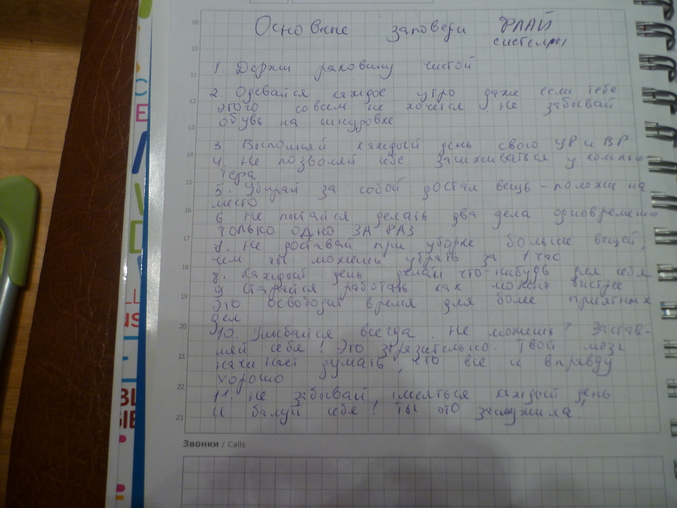 Основные заповеди ФЛАЙ
системы
1. Держи раковину чистой
2. Одевайся каждое утро даже если тебе
этого совсем не хочется не забывай
обувь на шнуровке
3. Выполняй каждый день свою УР и ВР
4. Не позволяй себе засиживаться у компью
тера
5. Убирай за собой: достал вещь - положи на
место
6 Не пытайся делать два дела одновременно
ТОЛЬКО ОДНО ЗА РАЗ
7. Не доставай при уборке больше вещей,
чем ты можешь убрать за 1 час
8. Каждый день делай что-нибудь для себя
9 Старайся работать как можно быстрее
Это освободит время для более приятных
дел
10. Улыбайся всегда Не можешь? Застав-
ляй себя! Это заразительно. Твой мозг
начинает думать, что все и вправду
хорошо
11. Не забывай смеяться каждый день
И балуй себя! Ты это заслужила!
09
10
11
12
13
14
15
16
17
18
19
20
21
22
23
Звонки / Calls